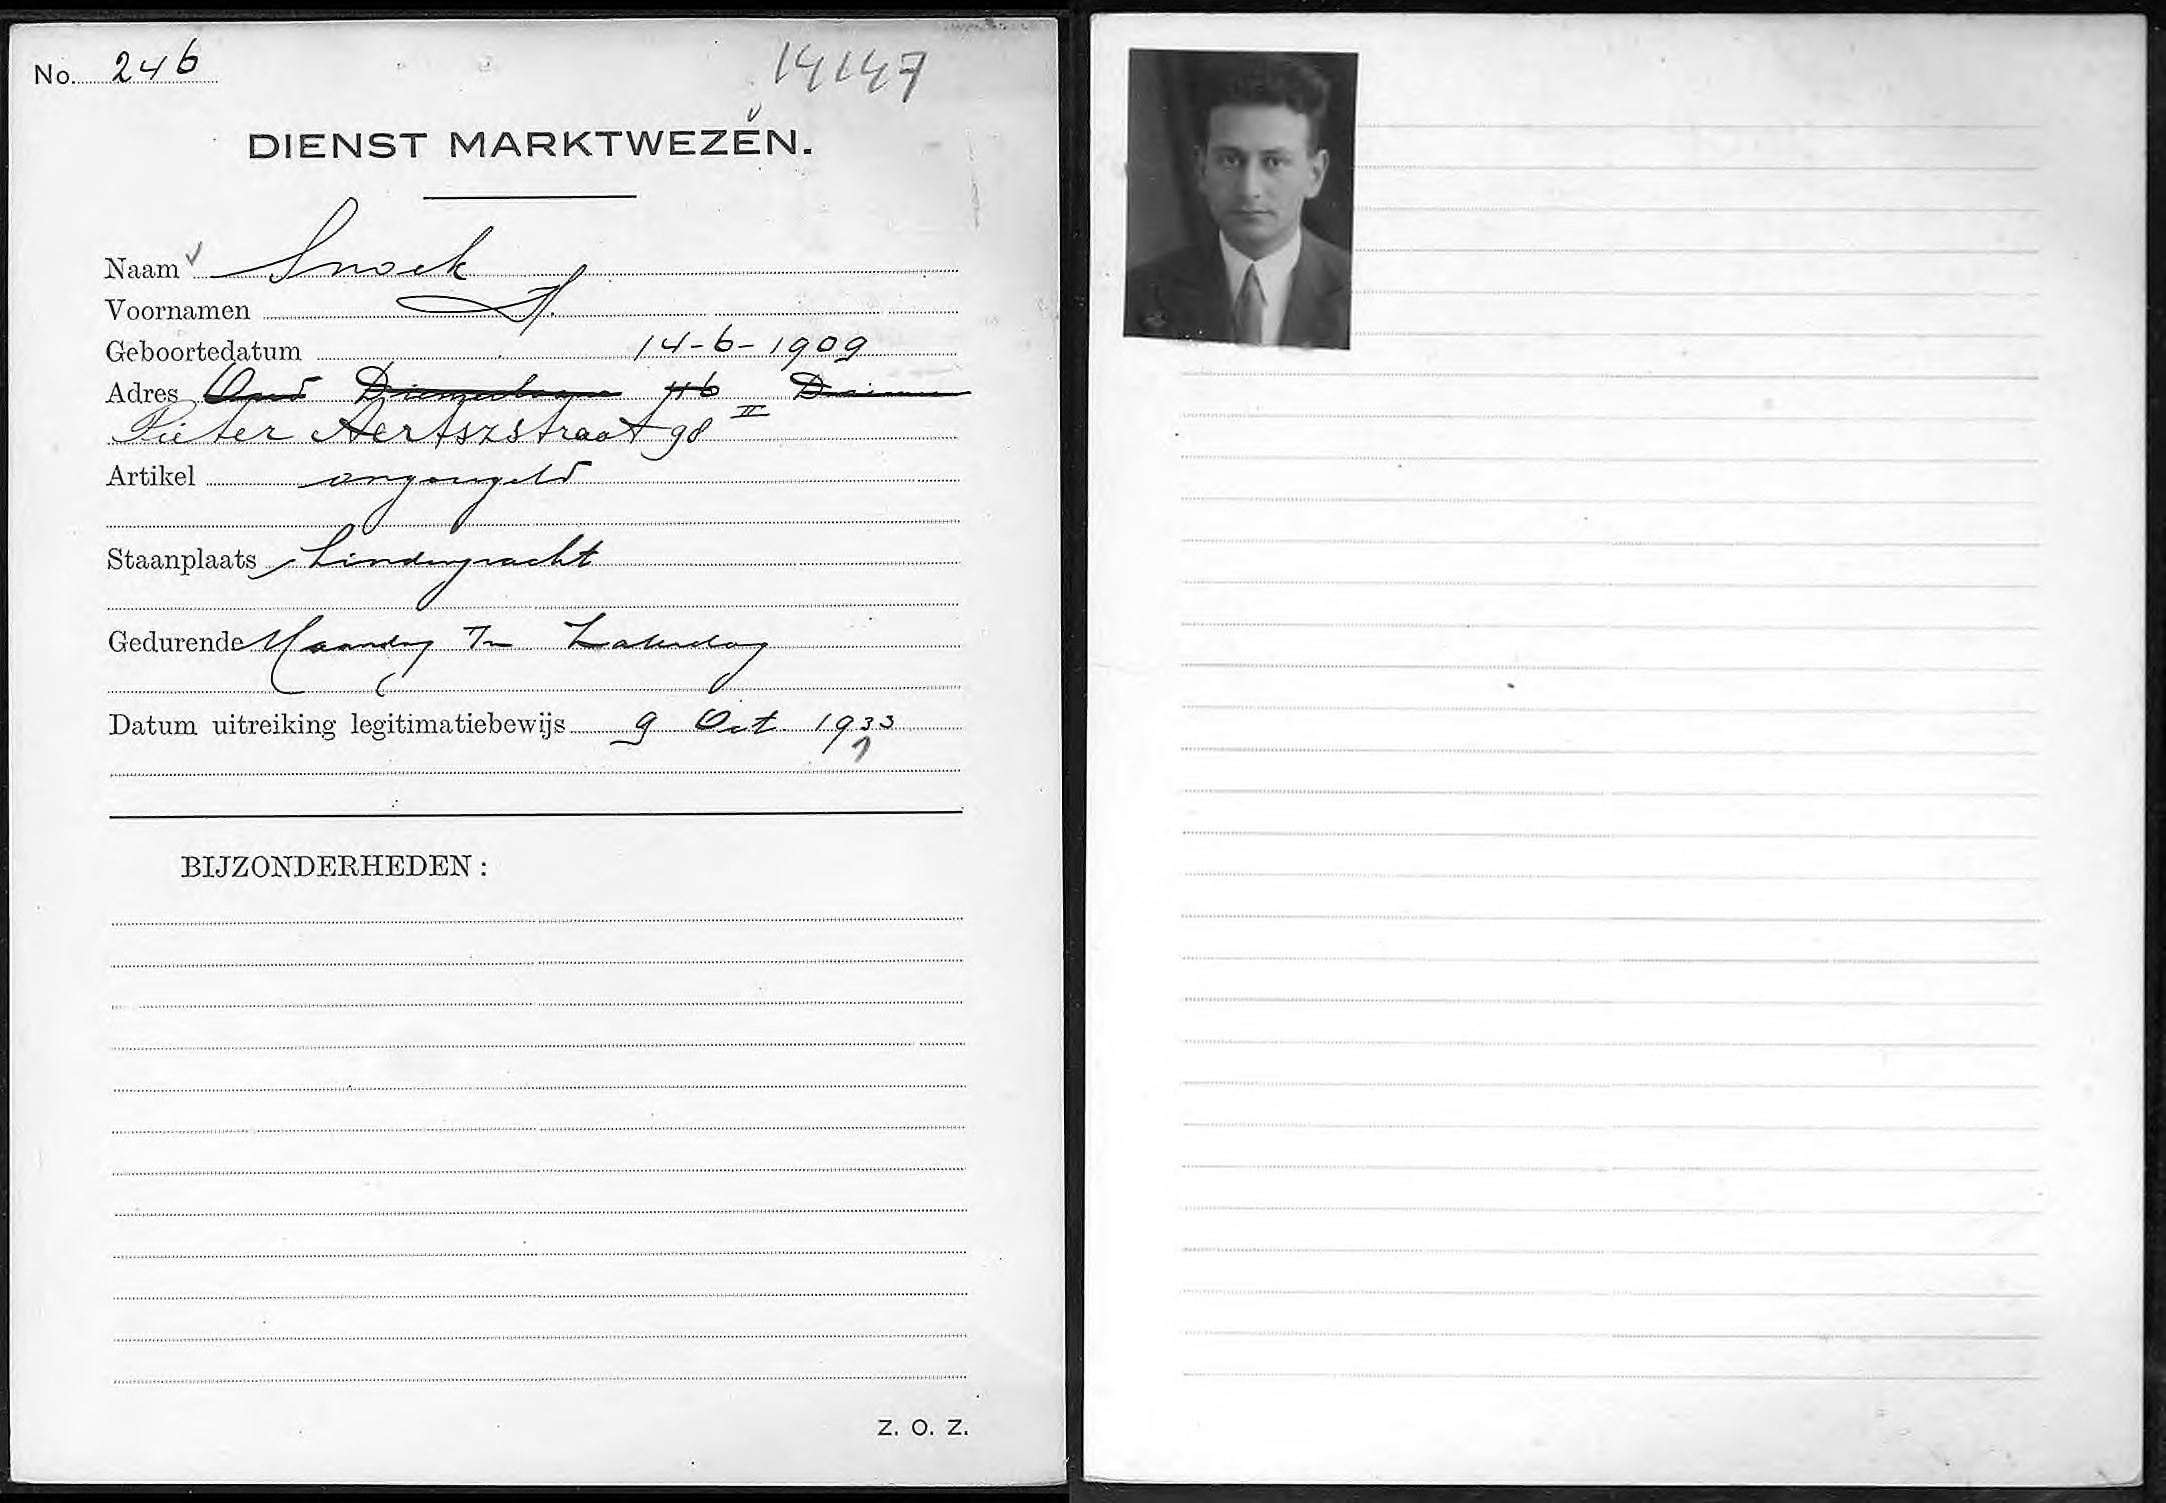 No. 246
14147
DIENST MARKTWEZEN.
Naam Snoek
Voornamen A.
Geboortedatum 14-6-1909
Adres Oud 46
Pieter Aertszstraat 98 II
Artikel
Staanplaats Lindengracht
Gedurende Maandag t/m Zaterdag
Datum uitreiking legitimatiebewijs 9 Oct. 1933
BIJZONDERHEDEN :
Z. O. Z.